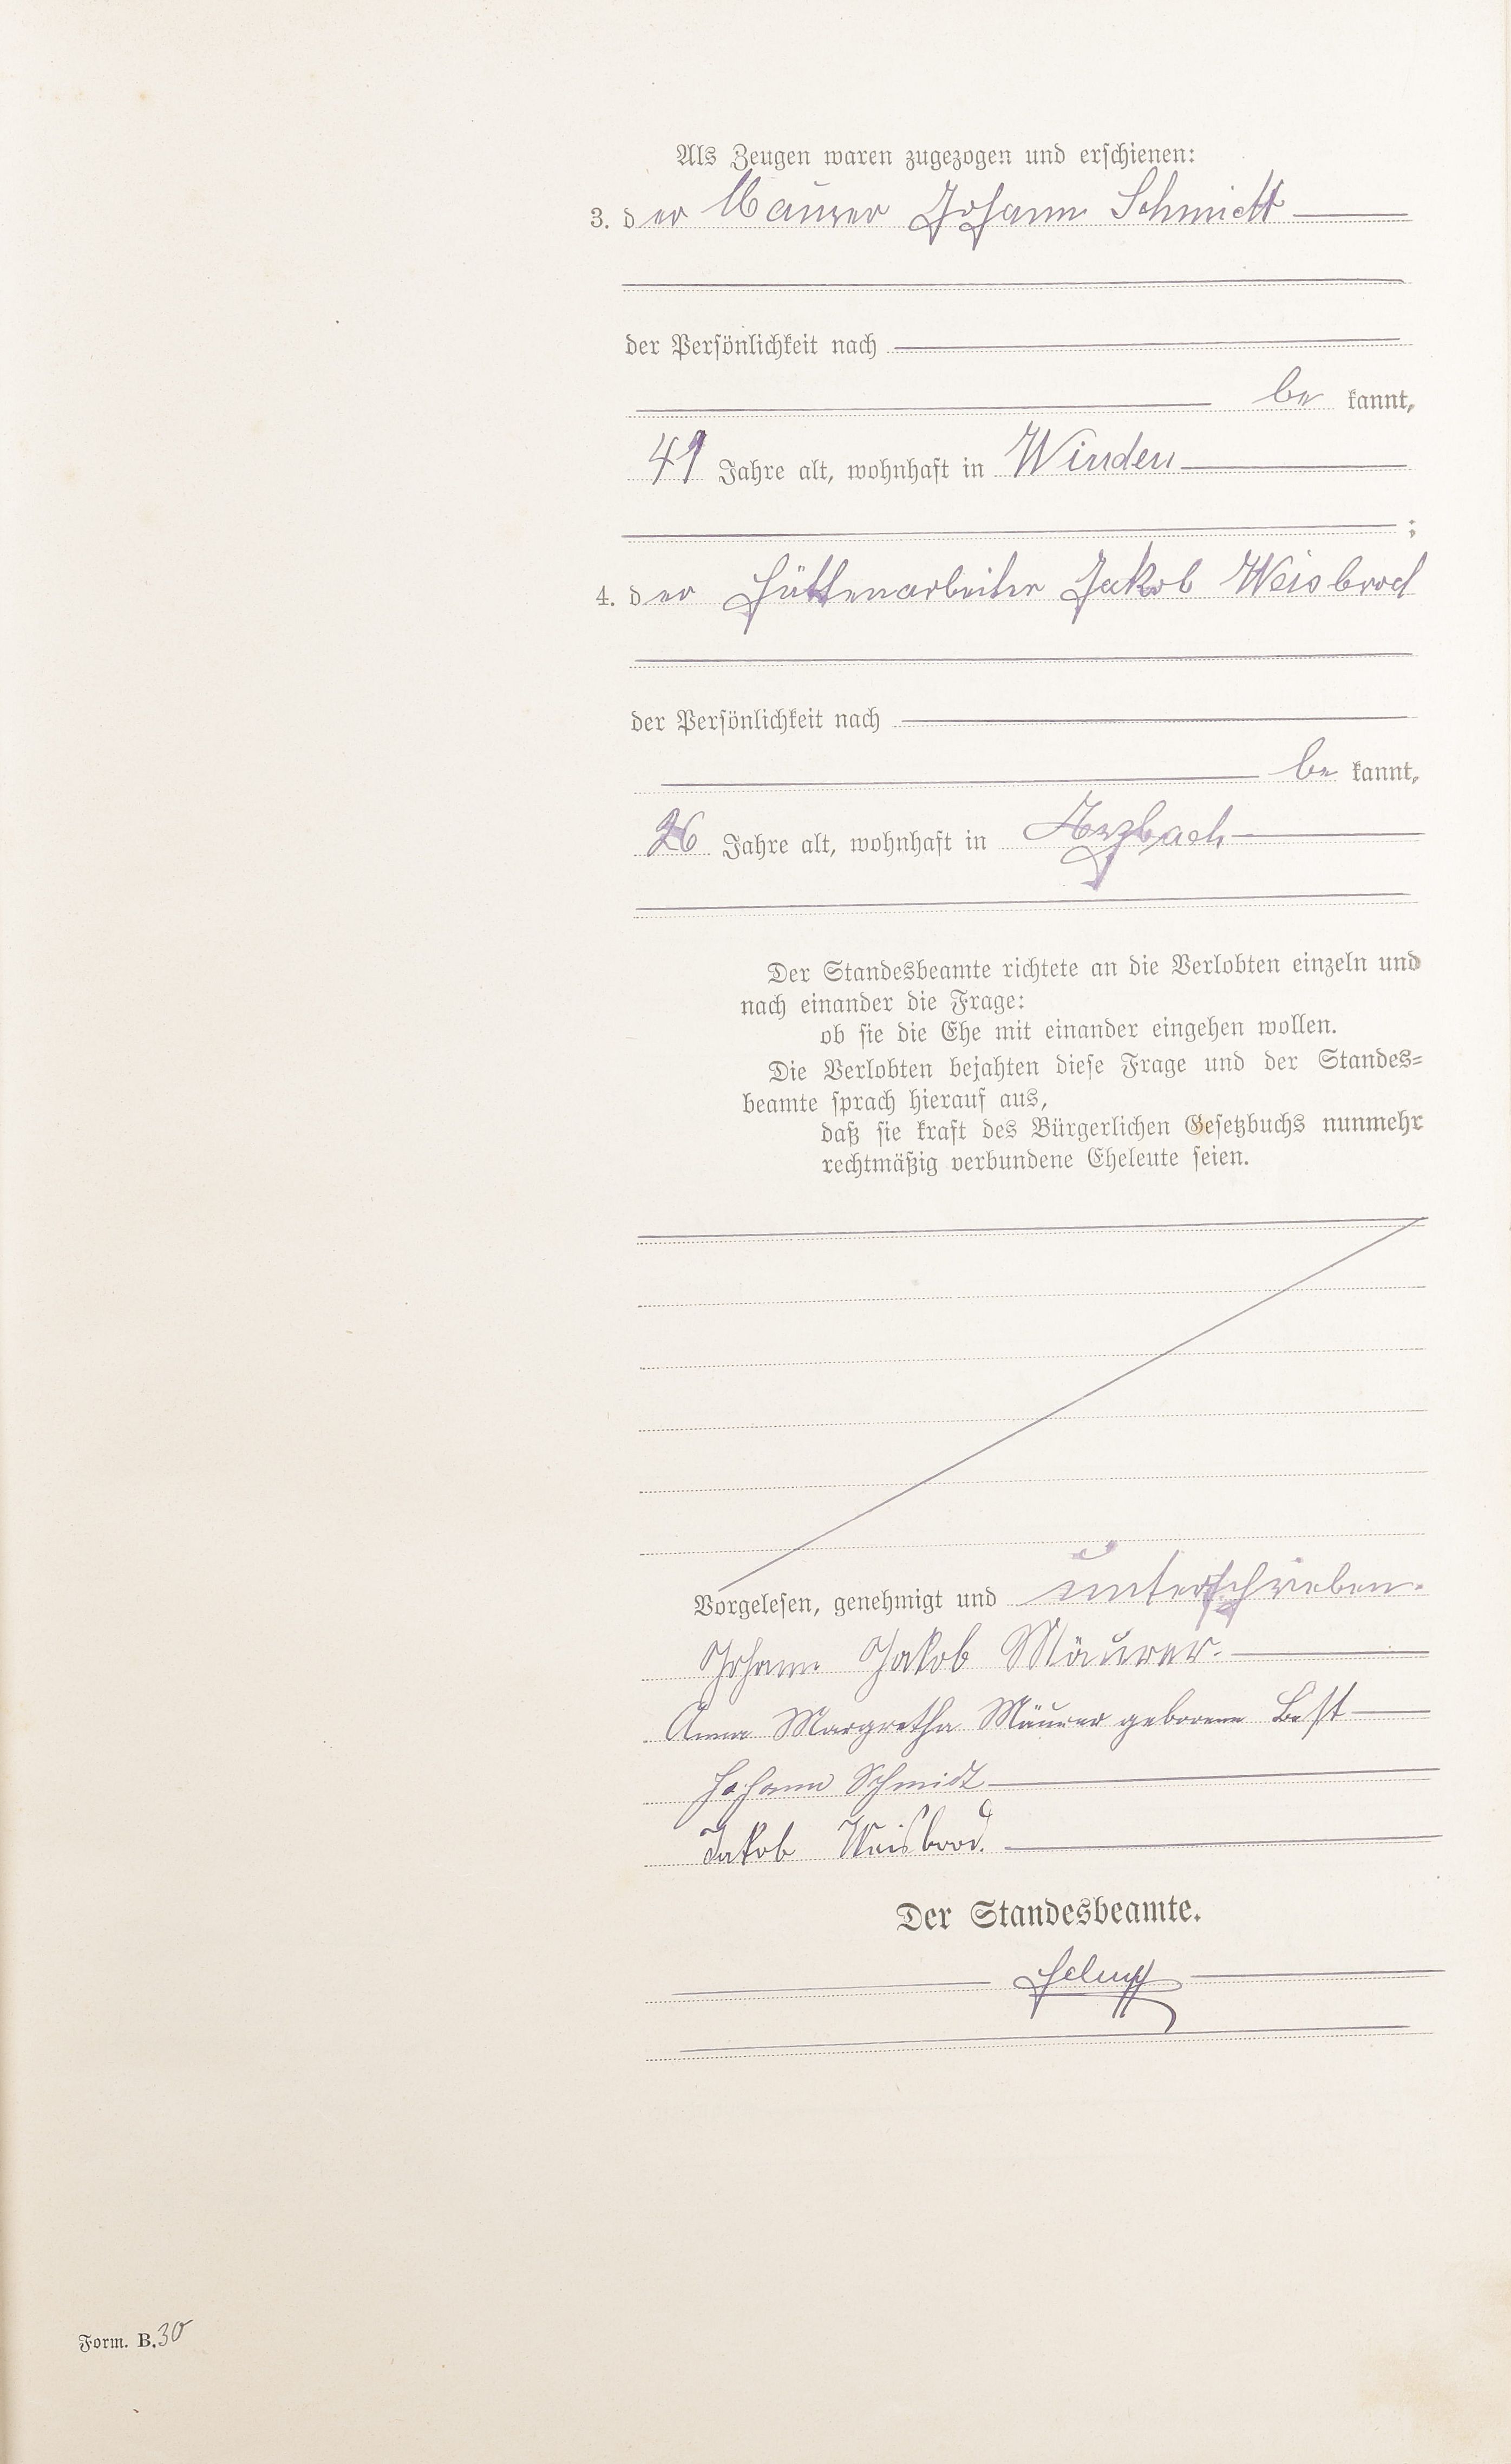 Als Zeugen waren zugezogen und erschienen:
3. der Maurer Johann Schmidt
der Persönlichkeit nach
be kannt,
41 Jahre alt, wohnhaft in Winden
;
4. der Hüttenarbeiter Jakob Weisbrod
der Persönlichkeit nach
be kannt,
26 Jahre alt, wohnhaft in Arzbach
Der Standesbeamte richtete an die Verlobten einzeln und
nach einander die Frage:
ob sie die Ehe mit einander eingehen wollen.
Die Verlobten bejahten diese Frage und der Standes=
beamte sprach hierauf aus,
daß sie kraft des Bürgerlichen Gesetzbuchs nunmehr
rechtmäßig verbundene Eheleute seien.
Vorgelesen, genehmigt und unterschrieben.
Johann Jakob Mäurer.
Anna Margretha Mäurer geborene Best
Johann Schmidt
Jakob Weisbrod.
Der Standesbeamte.
Form. B. 30